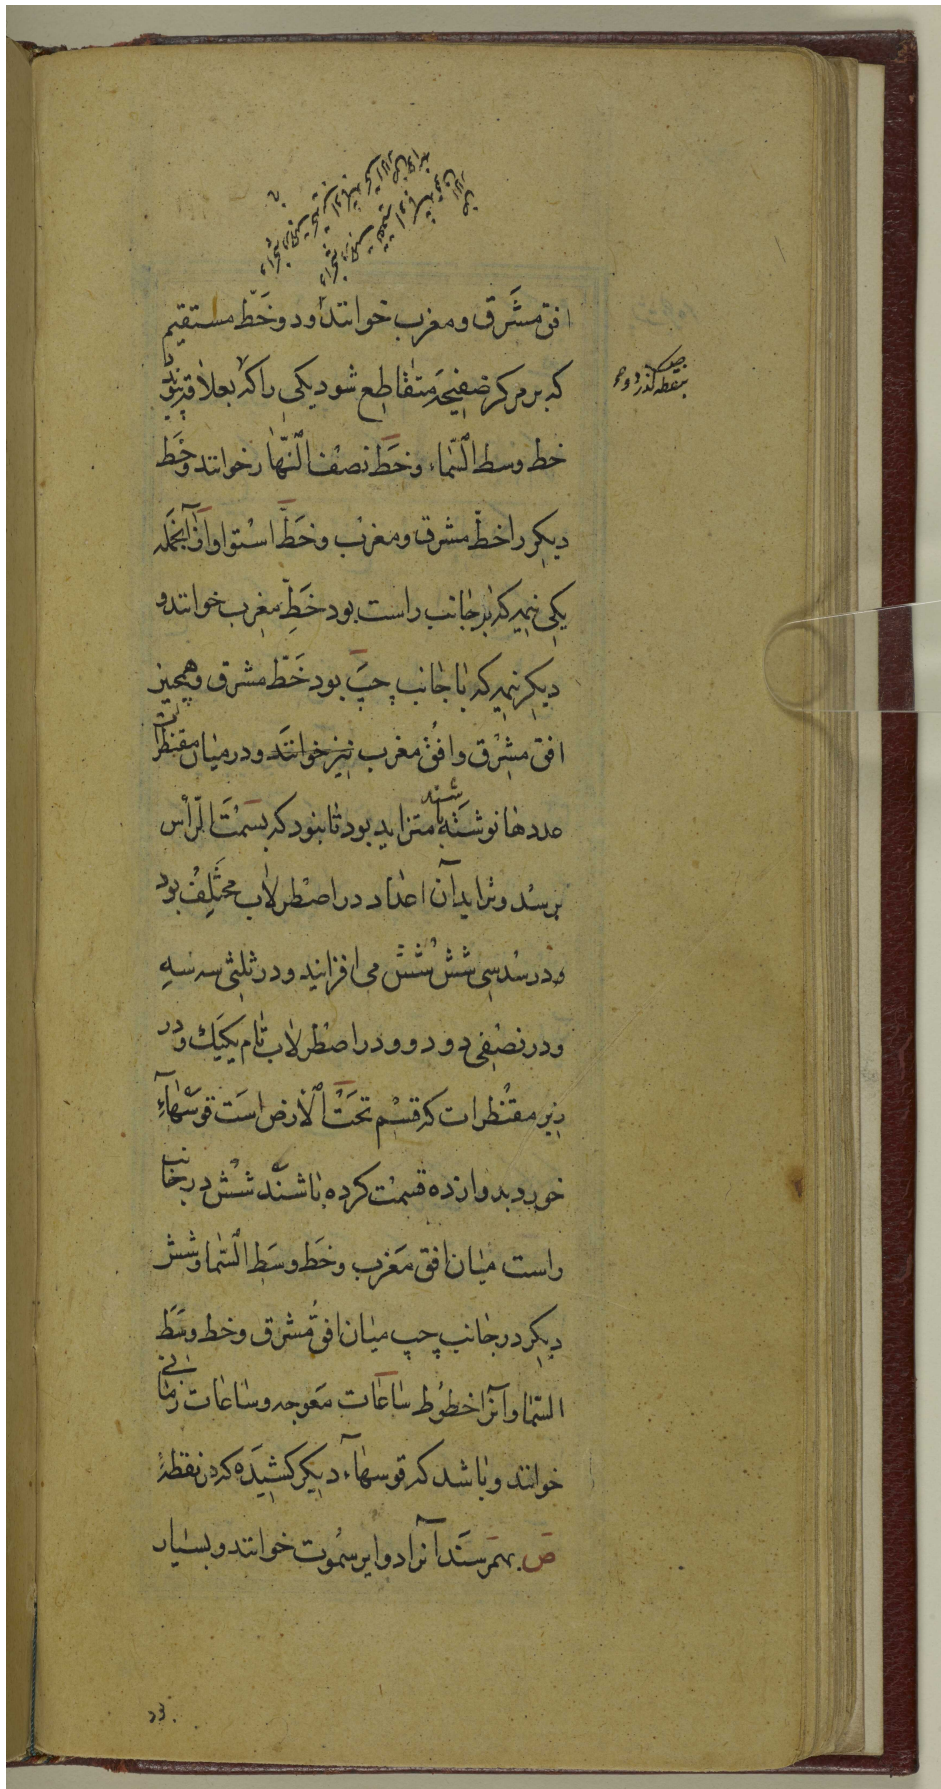 افق مشَرق ومغرب خوانند ودو خَطّ مستقیم
که بر مرکز صفیحه مَتقاطِع شود یکی را که بعلاقه
خط وسط السّماء وخَط نصف النّهار خوانند وخَط
دیکر را خطّ مشرق ومغرب وخَطّ اسْتوا وازآنجمله
یکی نیمه که بر جانب راست بود خَطِّ مغرب خوانند و
دیکر نیمه که با جانب چپَ بود خَطّ مشرق وهمچنین
افق مشْرق وافقُ مغرب نیز خوانَند ودر میان مقنطرات
عددها نوشتَه باشند متزاید بود تا بنود که بسَمْتَ الرّأس
برسْد وتزاید آن اعداد در اصْطرلاب مختَلِفْ بود
در سُدسِی شَشْ شُشْ می افزاید ودر ثلثی سه سه
ودر نصْفی دو دو ودر اصْطرلاب تام یکیَك ودر
زیر مقنْطرات که قسْمِ تحَتْ الْأرض است قوسْهاءِ
خورد بدوازده قسمت کرده باشَنَّد شُشْ در جانب
راست میان افق مَغربِ وخَط وسَطِ السّما وشَش
دیکر در جانب چپ میان افقُ مشرق وخط وسَط
السّما وآنرا خطوُط ساعَات مَعوجه وساعات زمانی
خوانند وباشد که قوسهآء دیکر کشیدَه که در نقطۀ
صَ بهمرسنَد آنرا دوایر سمُوت خوانند وبسیار